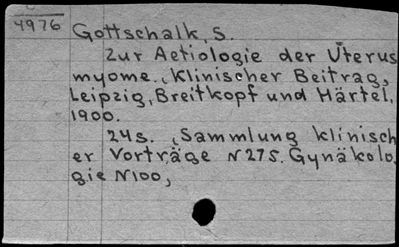 4976
Gottschalk, S.
Zur Aetiologie der Uterus
myome., Klinischer Beitrag,
Leipzig, Breitkopf und Härtel,
1900.
24s. (Sammlung klinisch
er Vorträge N275. Gynäkolo-
gie N100,